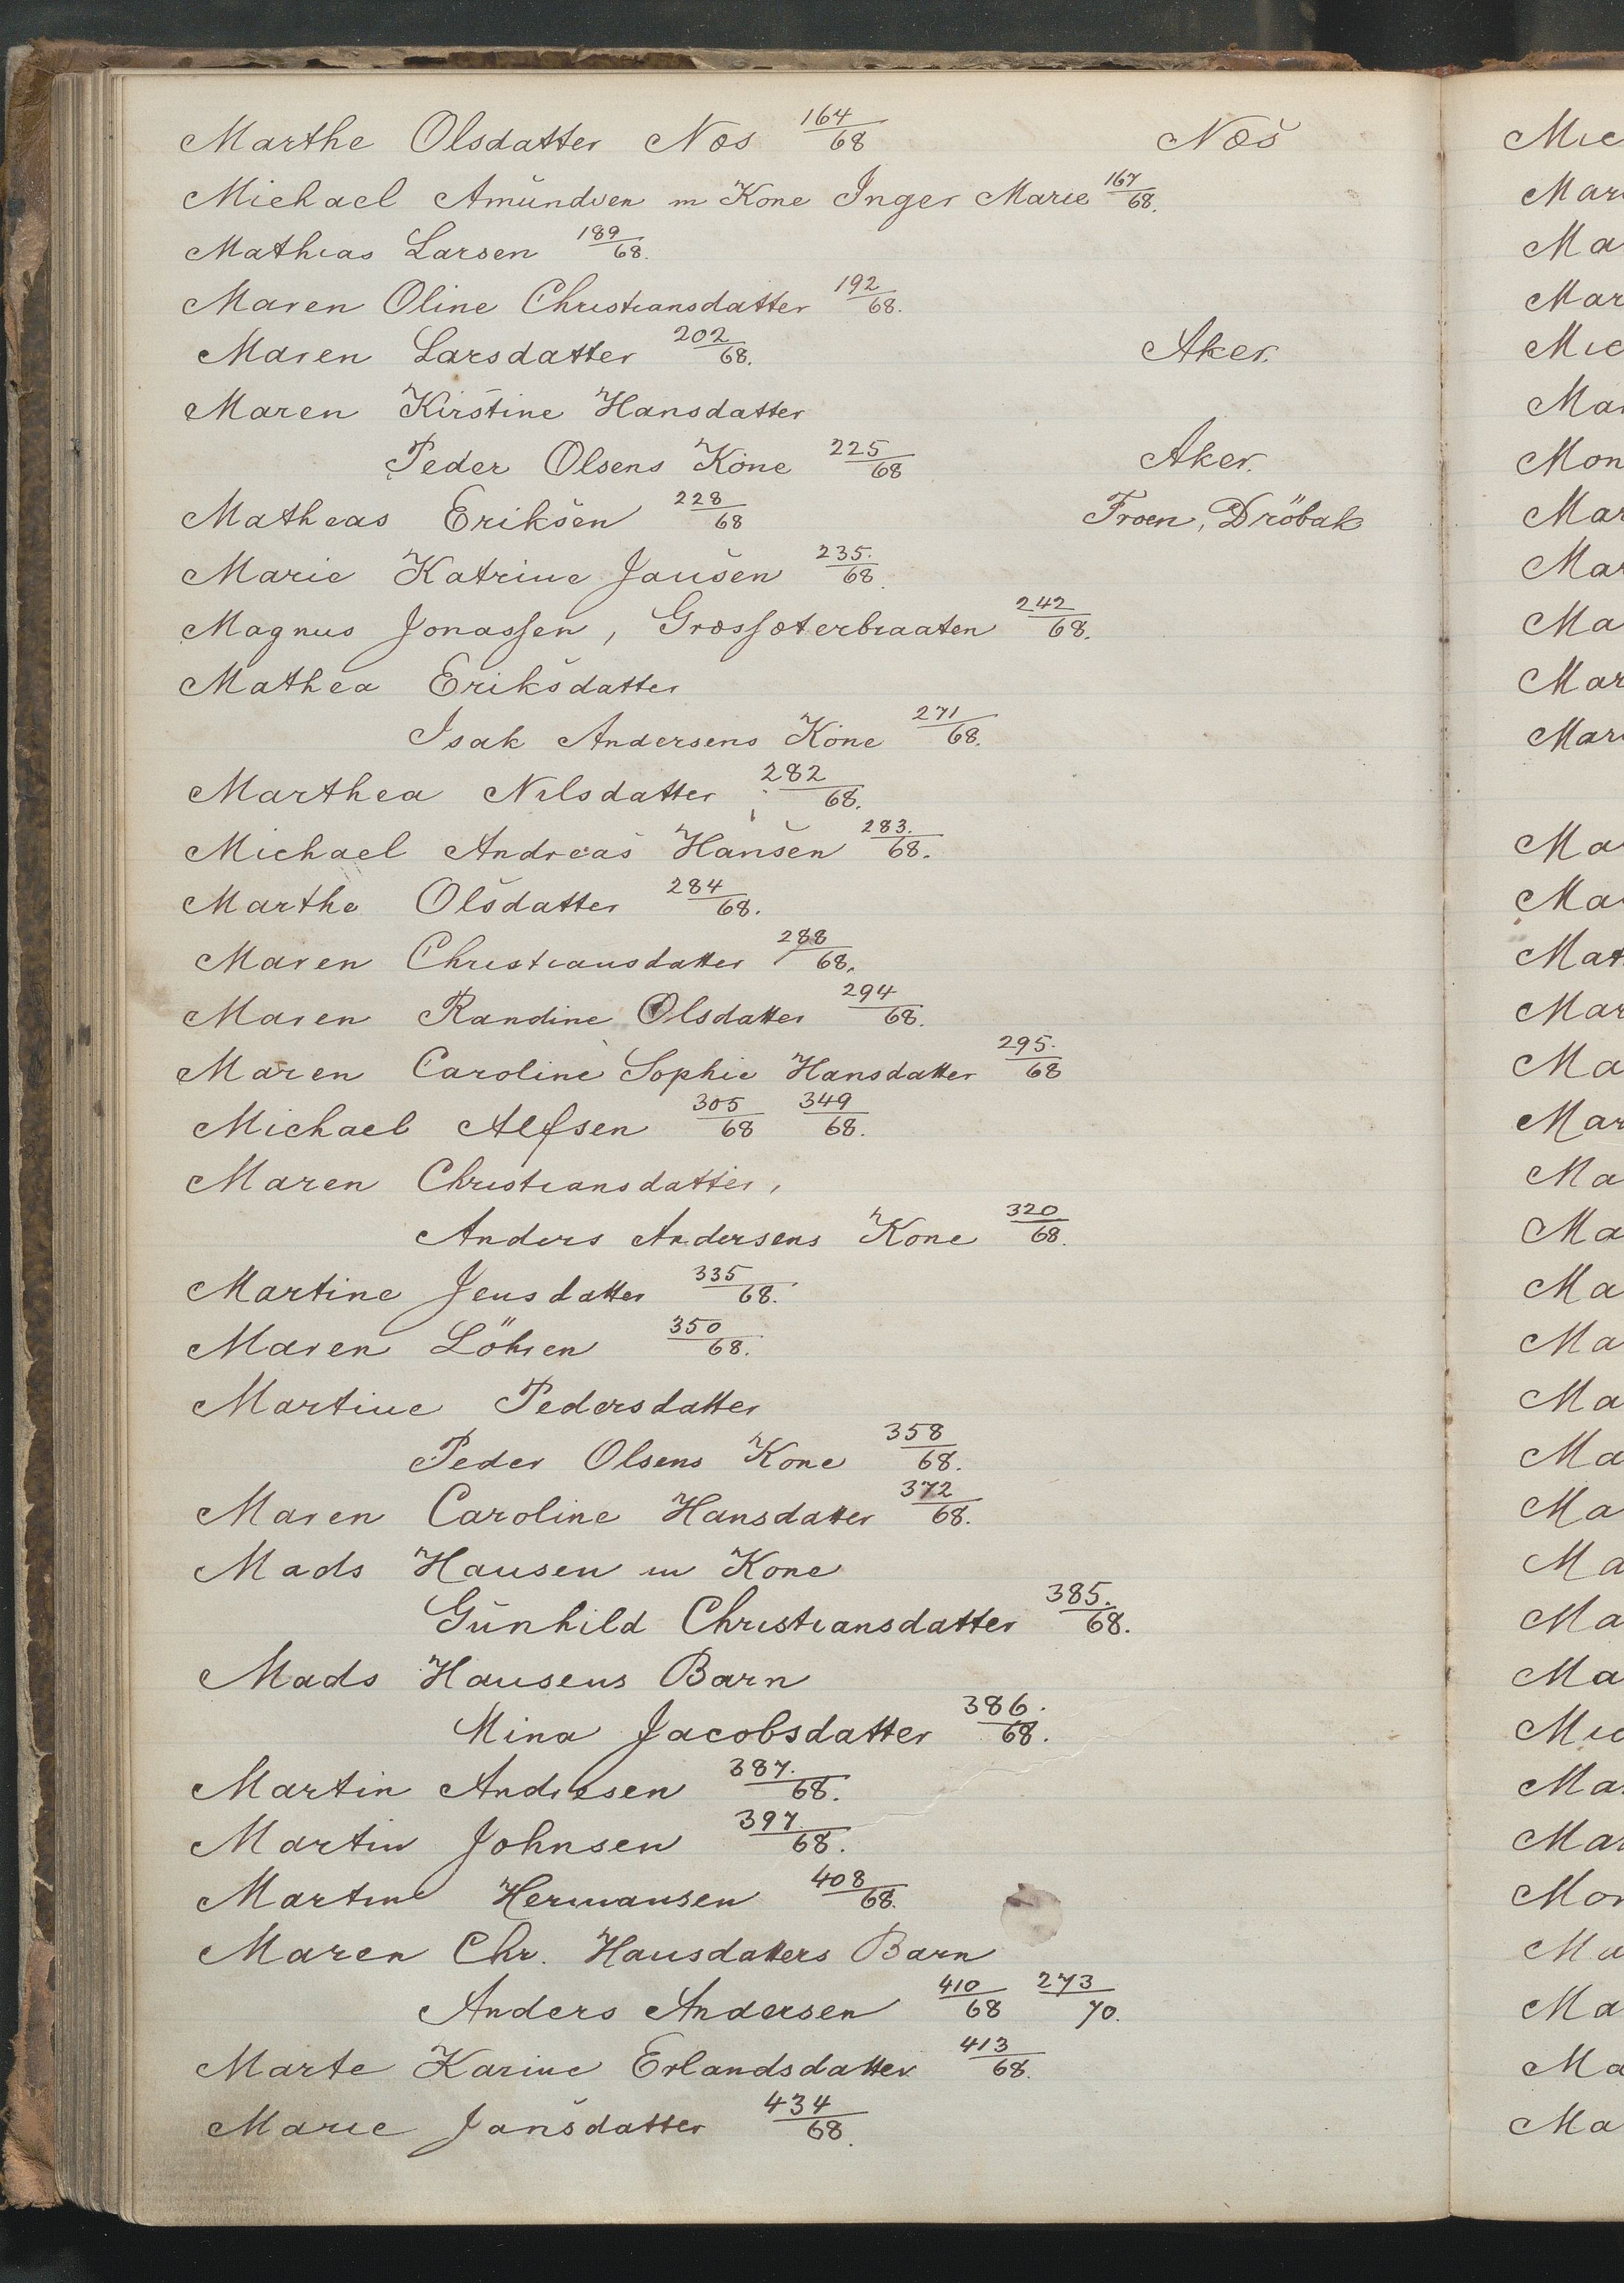 Marthe Olsdatter Næs 164/68 Næs
Michael Amundsen m Kone Inger Marie 167/68.
Mathias Larsen 189/68.
Maren Oline Christiansdatter 192/68.
Maren Larsdatter 202/68. Aker.
Maren Kirstine Hansdatter
Peder Olsens Kone 225/68 Aker.
Matheas Eriksen 228/68 Froen, Dröbak
Marie Katrine Jansen 235./68.
Magnus Jonassen, Græssæterbraaten 242/68.
Mathea Eriksdatter
Isak Andersens Kone 271/68.
Marthea Nilsdatter 282/68.
Michael Andreas Hansen 283./68.
Marthe Olsdatter 284/68.
Maren Christiansdatter 288/68.
Maren Randine Olsdatter 294/68.
Maren Caroline Sophie Hansdatter 295./68
Michael Alfsen 305/68 349/68.
Maren Christiansdatter,
Anders Andersens Kone 320/68.
Martine Jensdatter 335/68.
Maren Löhren 350/68.
Martine Pedersdatter
Peder Olsens Kone 358/68.
Maren Caroline Hansdatter 372/68.
Mads Hansen m Kone
Gunhild Christiansdatter 385./68.
Mads Hansens Barn
Mina Jacobsdatter 386./68.
Martin Andresen 387./68.
Martin Johnsen 397./68.
Martine Hermansen 408/68.
Maren Chr. Hansdatters Barn
Anders Andersen 410/68 273/70.
Marte Karine Erlandsdatter 413/68.
Marie Jansdatter 434/68.